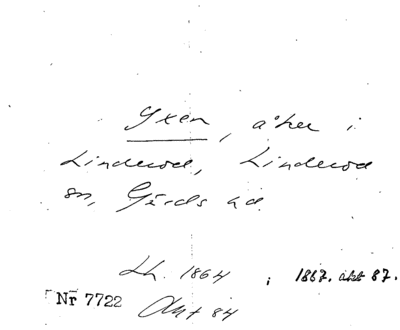 Yxen, åker i
Linderöd, Linderöd
sn, Gärds hd.
Lh. 1864 ; 1867. akt 87.
Nr 7722 Akt 84